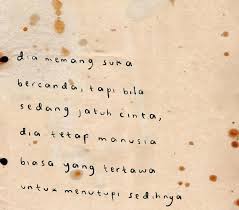 dia memang suka
bercanda, tapi bila
sedang jatuh cinta,
dia tetap manusia
biasa yang tertawa
untuk menutupi sedihnya